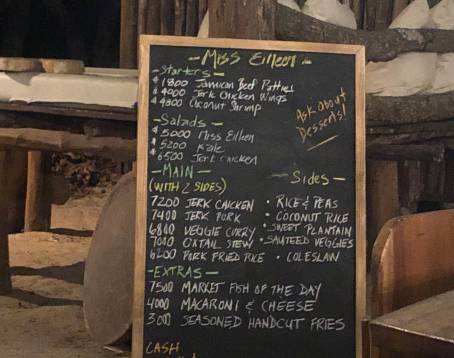 - Miss Eileen -
- Starters -
$ 1800 Jamican Beef Patties
$ 4000 Jerk Chicken Wings
$ 4800 Coconut Shrimp
Ask About Desserts!
- Salads -
$ 5000 Miss Eileen
$ 5200 Kale
$ 6500 Jerk Chicken
- MAIN -
(WITH 2 SIDES)
7200 JERK CHICKEN
7400 JERK PORK
6800 VEGGIE CURRY
7000 OXTAIL STEW
6200 PORK FRIED RICE
- Sides -
• RICE & PEAS
• COCONUT RICE
• SWEET PLANTAIN
• SAUTEED VEGGIES
• COLESLAW
- EXTRAS -
7500 MARKET FISH OF THE DAY
4000 MACARONI & CHEESE
3000 SEASONED HANDCUT FRIES
CASH